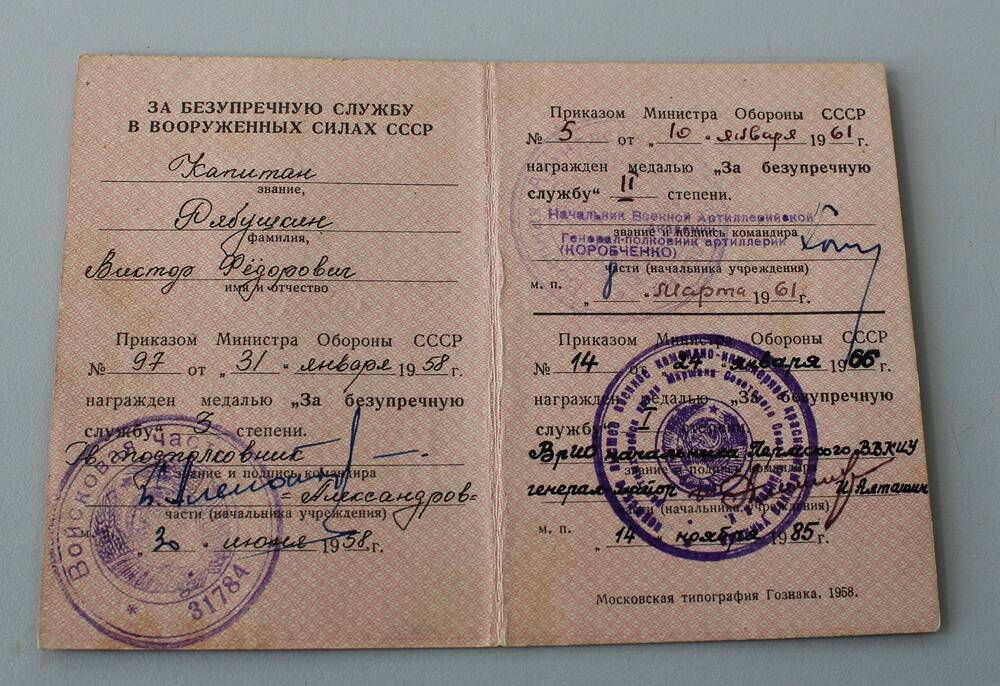 ЗА БЕЗУПРЕЧНУЮ СЛУЖБУ
В ВООРУЖЕННЫХ СИЛАХ СССР
Капитан
звание,
Рябушкин
фамилия,
Виктор Фёдорович
имя и отчество
Приказом Министра Обороны СССР
№ 97 от „31“ января 1958 г.
награжден медалью „За безупречную
службу“ 3 степени.
подполковник
звание и подпись командира
=Александров=
части (начальника учреждения)
м. п. „30“ июня 1958 г.
Войсковая часть
* 31784
Приказом Министра Обороны СССР
№ 5 от „10“ января 1961 г.
награжден медалью „За безупречную
службу“ II степени.
Начальник Военной Артиллерийской
Академии
звание и подпись командира
Генерал-полковник артиллерии
(КОРОБЧЕНКО)
части (начальника учреждения)
м. п. „ “ марта 1961 г.
Приказом Министра Обороны СССР
№ 14 от „24“ января 1966 г.
награжден медалью „За безупречную
службу“ I степени.
ВрИО начальника Пермского ВВКИУ
звание и подпись командира
генерал-майор И Алташин
части (начальника учреждения)
м. п. „14“ ноября 1985 г.
Московская типография Гознака. 1958.